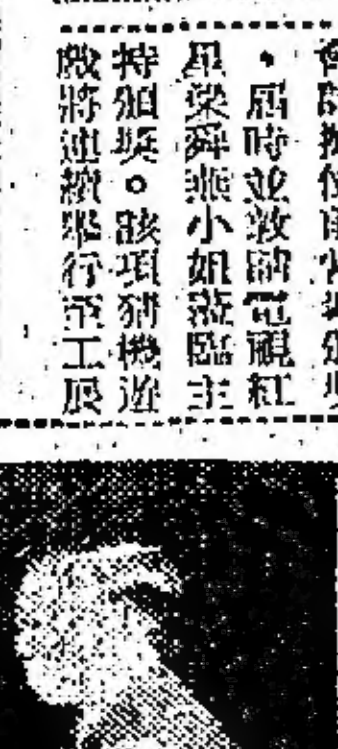 。屆時並敦請電視紅
星梁舜燕小姐蒞臨主
持頒獎。該項猜機遊
戲將連續舉行至工展